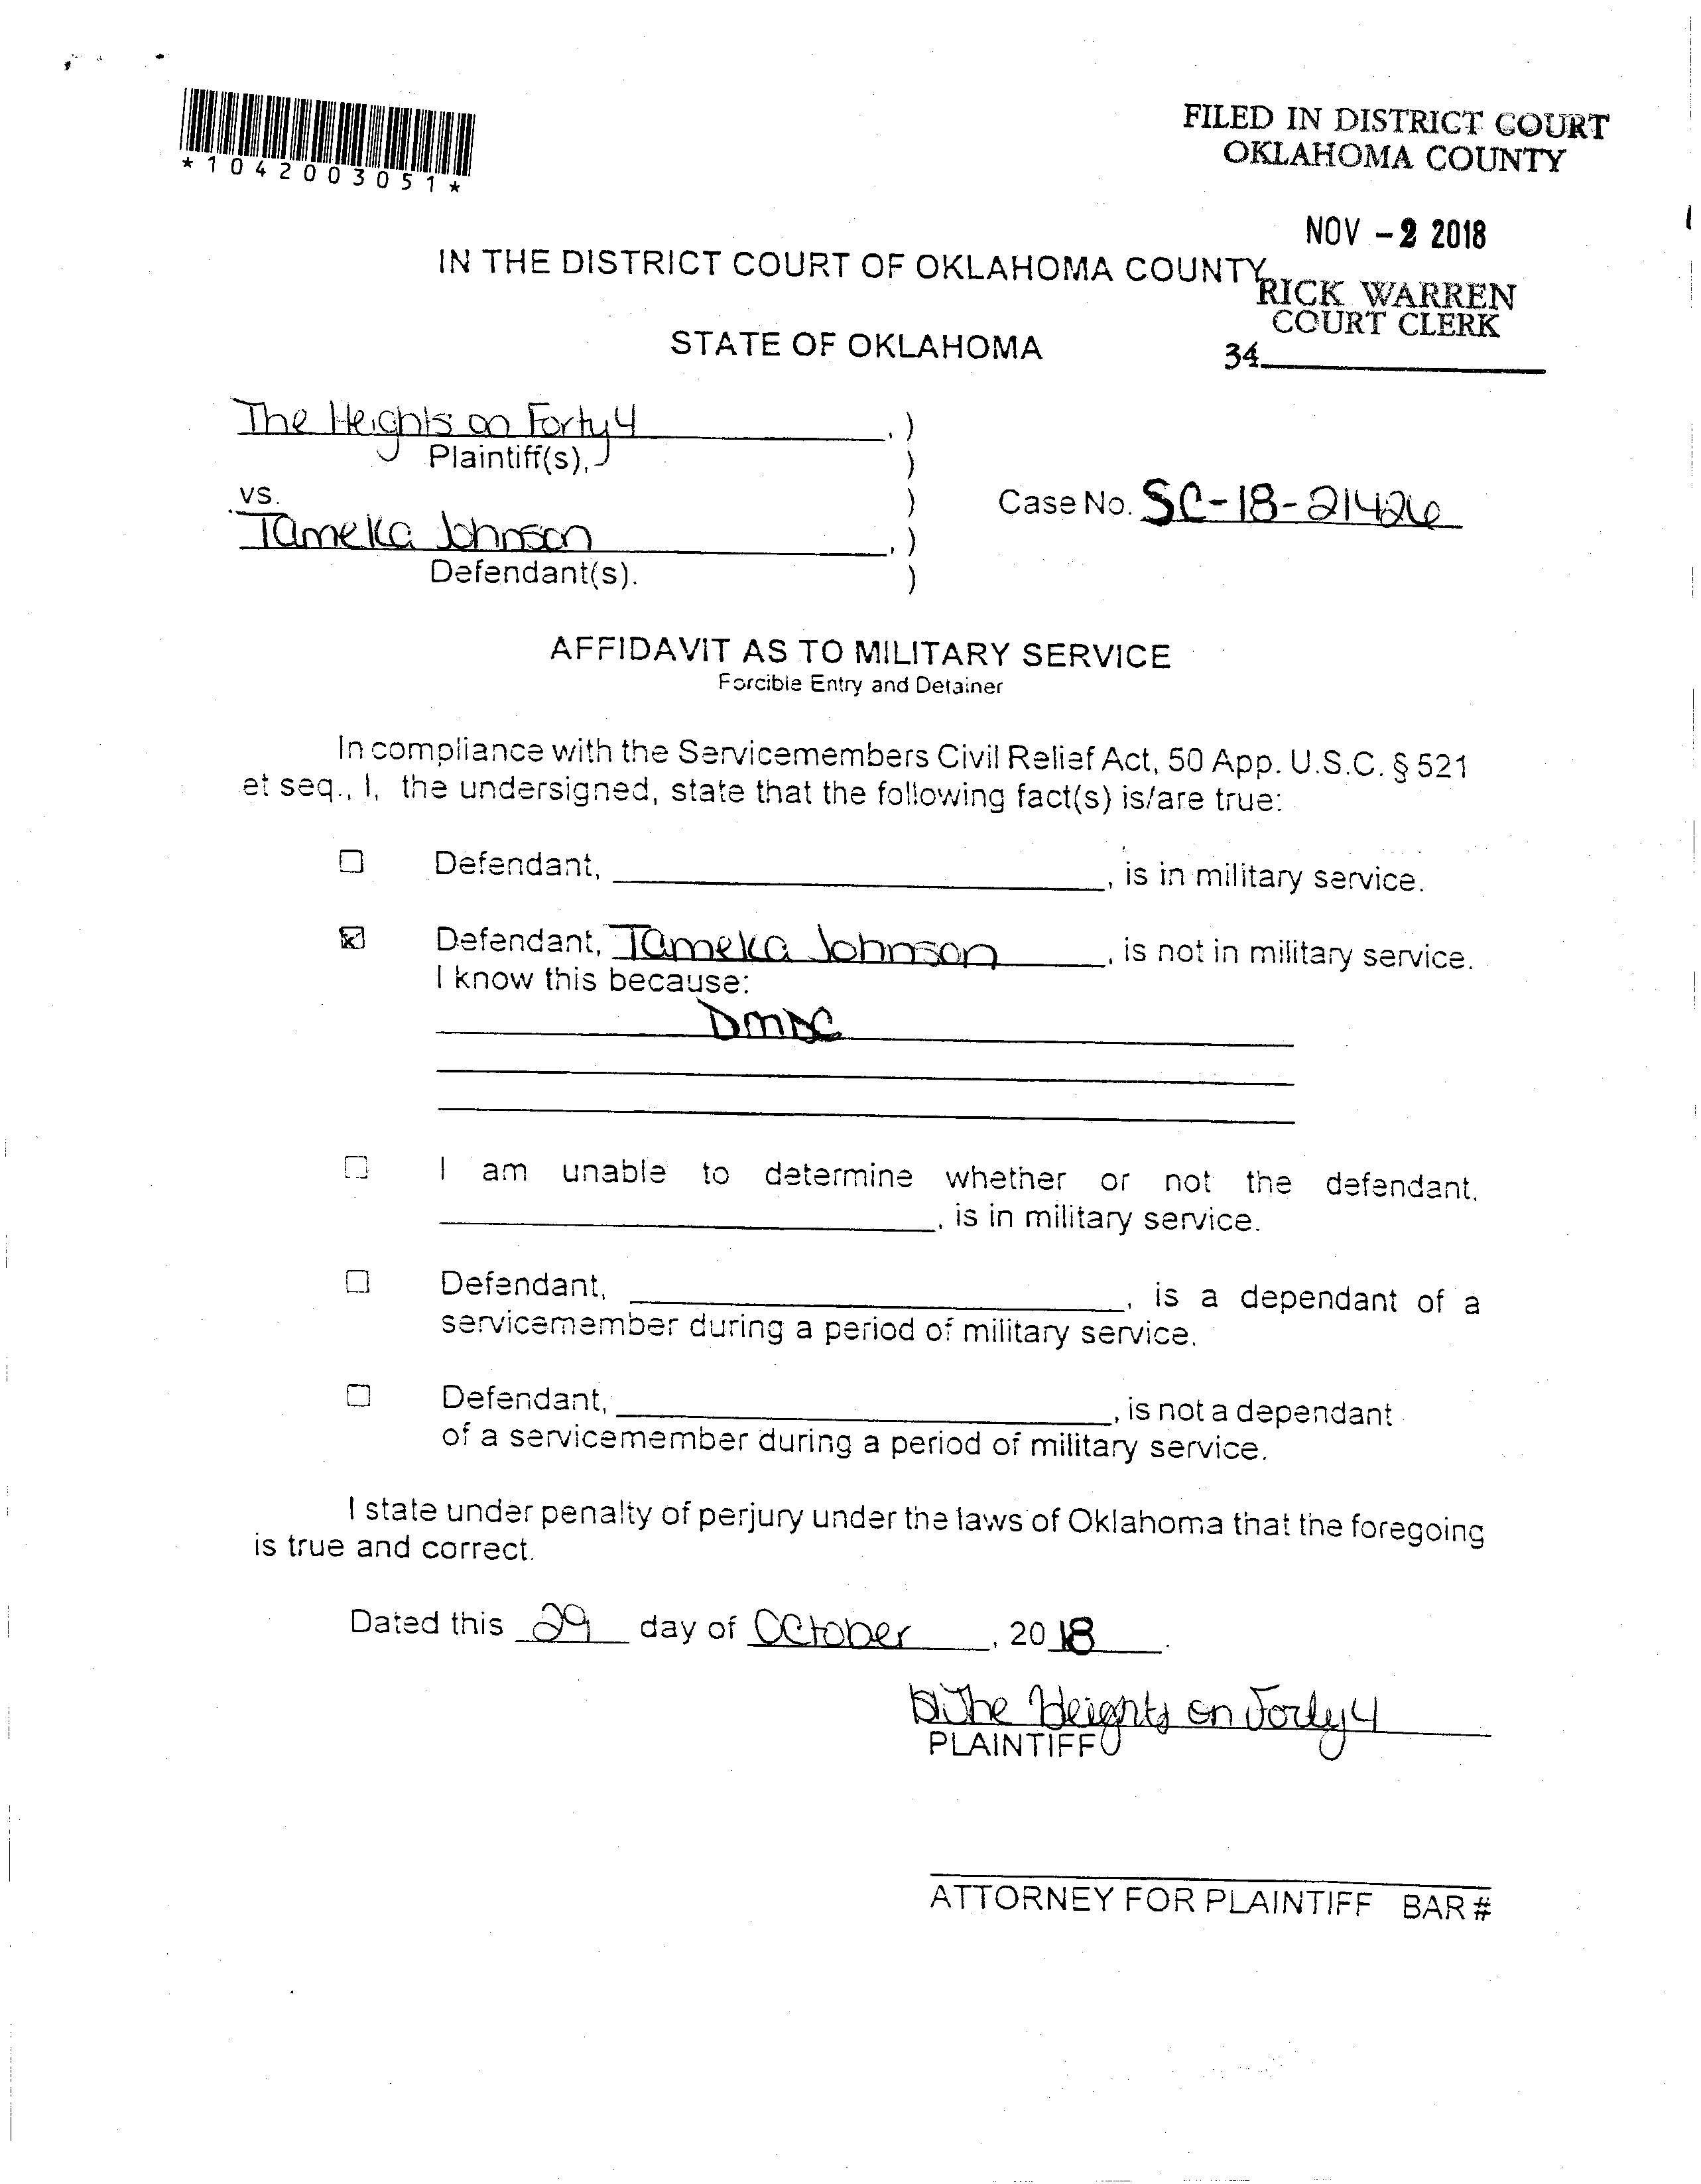 *1042003051*
FILED IN DISTRICT COURT
OKLAHOMA COUNTY
NOV - 2 2018
IN THE DISTRICT COURT OF OKLAHOMA COUNTY
RICK WARREN
COURT CLERK
STATE OF OKLAHOMA
34
The Heights on Forty 4 , )
Plaintiff(s), )
vs. )
Case No. SC-18-21426
Tameka Johnson , )
Defendant(s). )
AFFIDAVIT AS TO MILITARY SERVICE
Forcible Entry and Detainer
In compliance with the Servicemembers Civil Relief Act, 50 App. U.S.C. § 521
et seq., I, the undersigned, state that the following fact(s) is/are true:
Defendant, , is in military service.
Defendant, Tameka Johnson , is not in military service.
I know this because:
DMDC
I am unable to determine whether or not the defendant,
, is in military service.
Defendant, , is a dependant of a
servicemember during a period of military service.
Defendant, , is not a dependant
of a servicemember during a period of military service.
I state under penalty of perjury under the laws of Oklahoma that the foregoing
is true and correct.
Dated this 29 day of October , 2018 .
The Heights on Forty 4
PLAINTIFF
ATTORNEY FOR PLAINTIFF BAR #